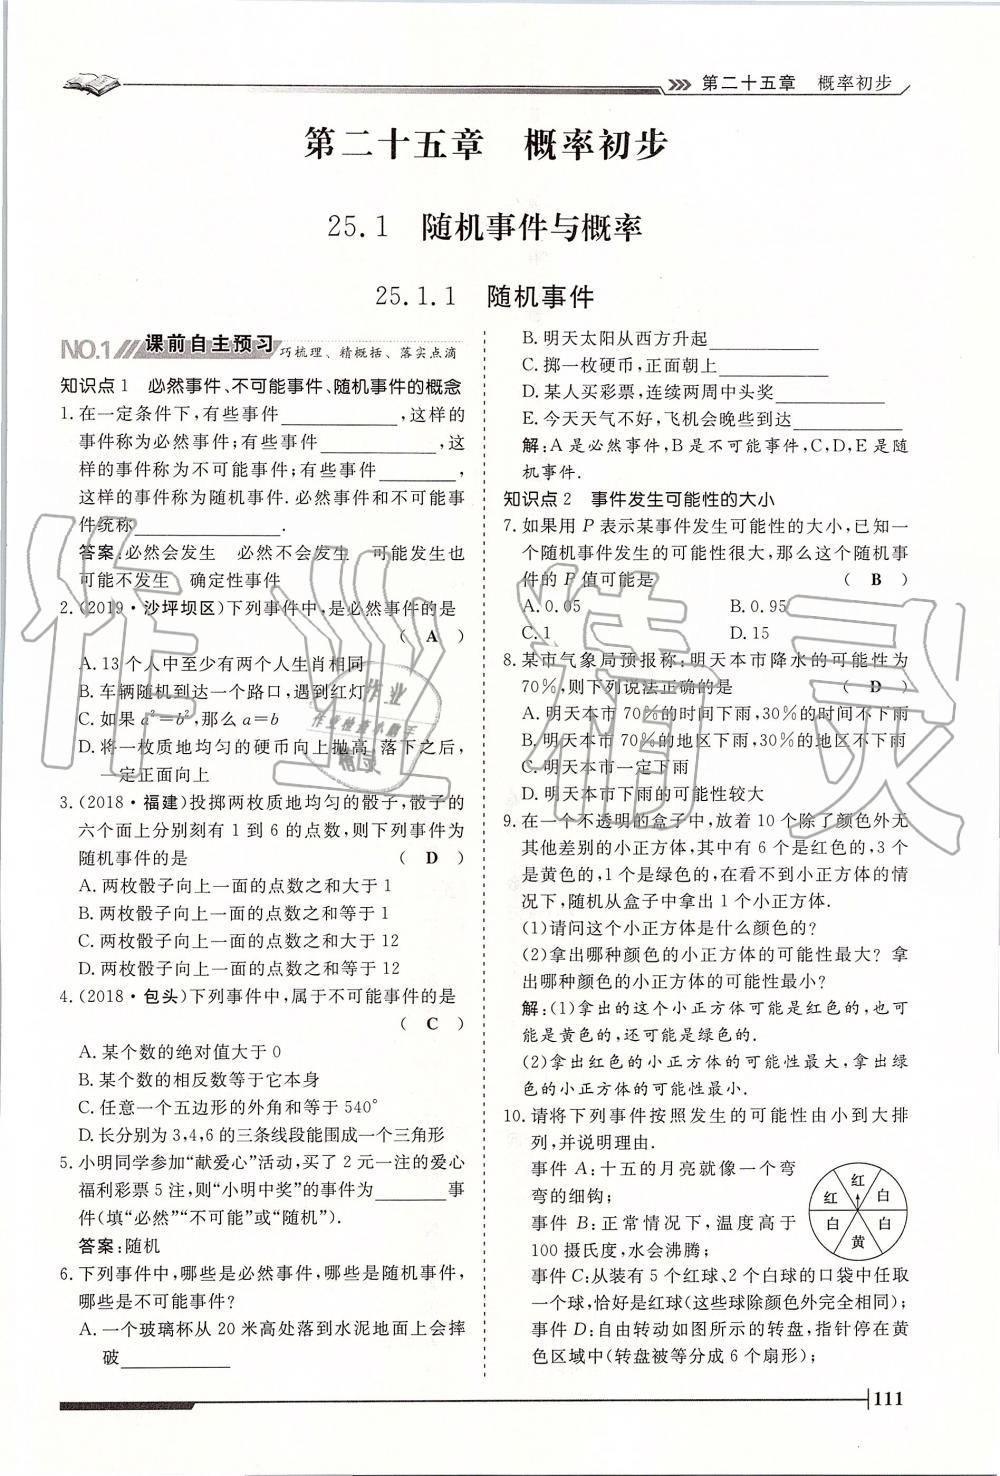 第二十五章 概率初步
第二十五章 概率初步
25.1 随机事件与概率
25.1.1 随机事件
NO.1 课前自主预习 巧梳理、精概括、落实点滴
知识点1 必然事件、不可能事件、随机事件的概念
1.在一定条件下,有些事件____________,这样的
事件称为必然事件;有些事件____________,这
样的事件称为不可能事件;有些事件________,
这样的事件称为随机事件.必然事件和不可能事
件统称______________.
答案:必然会发生 必然不会发生 可能发生也
可能不发生 确定性事件
2.(2019·沙坪坝区)下列事件中,是必然事件的是
( A )
A.13个人中至少有两个人生肖相同
B.车辆随机到达一个路口,遇到红灯
C.如果a²=b²,那么a=b
D.将一枚质地均匀的硬币向上抛高,落下之后,
一定正面向上
3.(2018·福建)投掷两枚质地均匀的骰子,骰子的
六个面上分别刻有1到6的点数,则下列事件为
随机事件的是 ( D )
A.两枚骰子向上一面的点数之和大于1
B.两枚骰子向上一面的点数之和等于1
C.两枚骰子向上一面的点数之和大于12
D.两枚骰子向上一面的点数之和等于12
4.(2018·包头)下列事件中,属于不可能事件的是
( C )
A.某个数的绝对值大于0
B.某个数的相反数等于它本身
C.任意一个五边形的外角和等于540°
D.长分别为3,4,6的三条线段能围成一个三角形
5.小明同学参加“献爱心”活动,买了2元一注的爱心
福利彩票5注,则“小明中奖”的事件为________事
件(填“必然”“不可能”或“随机”).
答案:随机
6.下列事件中,哪些是必然事件,哪些是随机事件,
哪些是不可能事件?
A.一个玻璃杯从20米高处落到水泥地面上会摔
破____________
B.明天太阳从西方升起____________
C.掷一枚硬币,正面朝上____________
D.某人买彩票,连续两周中头奖____________
E.今天天气不好,飞机会晚些到达____________
解:A是必然事件,B是不可能事件,C,D,E是随
机事件.
知识点2 事件发生可能性的大小
7.如果用P表示某事件发生可能性的大小,已知一
个随机事件发生的可能性很大,那么这个随机事
件的P值可能是 ( B )
A.0.05 B.0.95
C.1 D.15
8.某市气象局预报称:明天本市降水的可能性为
70%,则下列说法正确的是 ( D )
A.明天本市70%的时间下雨,30%的时间不下雨
B.明天本市70%的地区下雨,30%的地区不下雨
C.明天本市一定下雨
D.明天本市下雨的可能性较大
9.在一个不透明的盒子中,放着10个除了颜色外无
其他差别的小正方体,其中有6个是红色的,3个
是黄色的,1个是绿色的,在看不到小正方体的情
况下,随机从盒子中拿出1个小正方体.
(1)请问这个小正方体是什么颜色的?
(2)拿出哪种颜色的小正方体的可能性最大? 拿
出哪种颜色的小正方体的可能性最小?
解:(1)拿出的这个小正方体可能是红色的,也可
能是黄色的,还可能是绿色的.
(2)拿出红色的小正方体的可能性最大,拿出绿
色的小正方体的可能性最小.
10.请将下列事件按照发生的可能性由小到大排
列,并说明理由.
事件A:十五的月亮就像一个弯
弯的细钩;
事件B:正常情况下,温度高于
100摄氏度,水会沸腾;
红
红 白
白 白
黄
事件C:从装有5个红球、2个白球的口袋中任取
一个球,恰好是红球(这些球除颜色外完全相同);
事件D:自由转动如图所示的转盘,指针停在黄
色区域中(转盘被等分成6个扇形);
111
作业精灵
作业
作业检查小助手
精灵